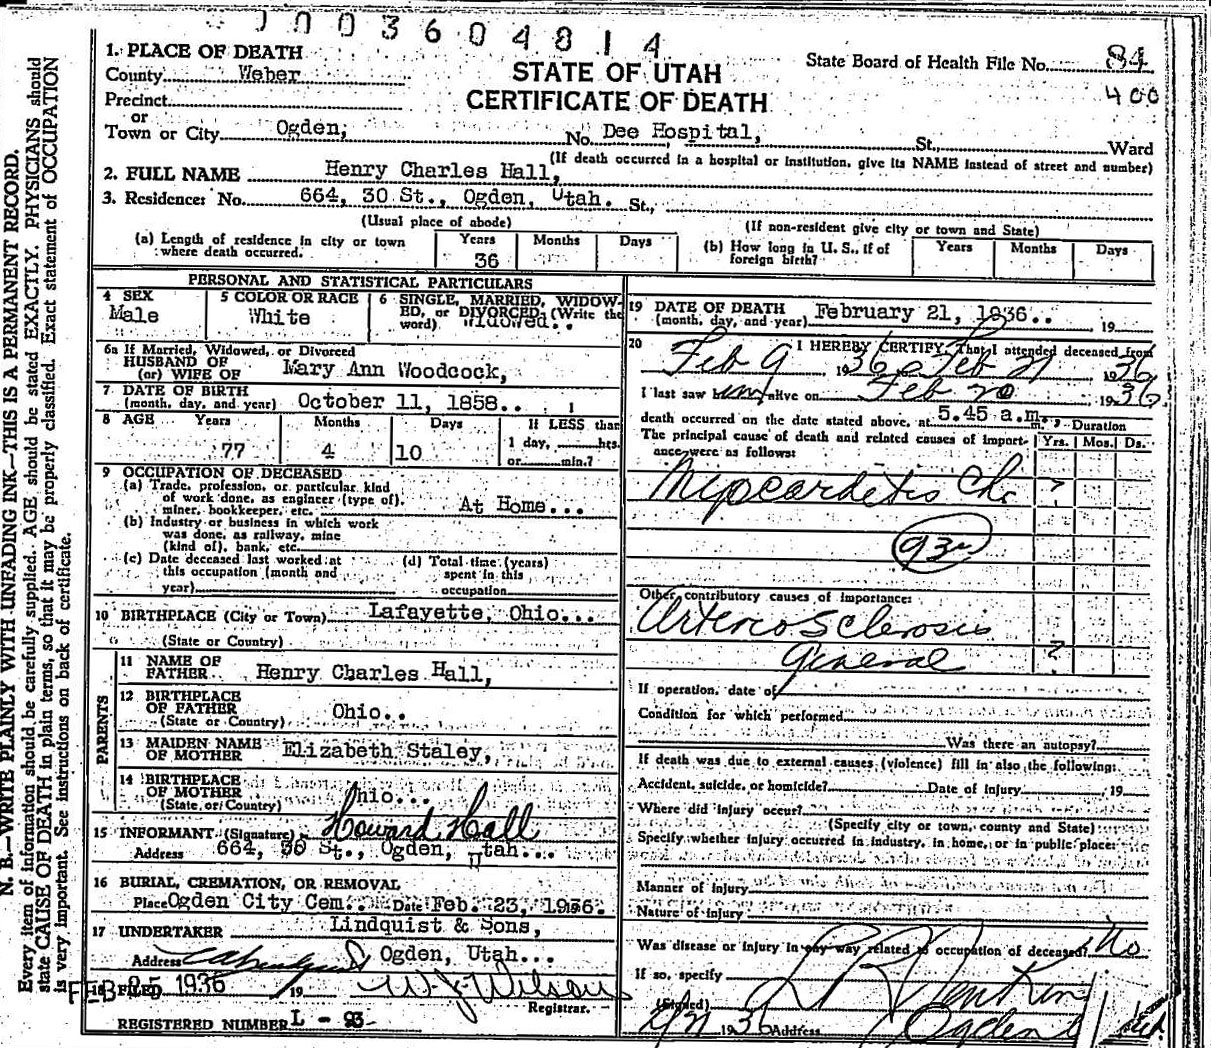 0003604814
1. PLACE OF DEATH
State Board of Health File No. 84
County Weber
STATE OF UTAH
400
Precinct
CERTIFICATE OF DEATH
or
Town or City Ogden, No. Dee Hospital, St., Ward
(If death occurred in a hospital or institution, give its NAME instead of street and number)
2. FULL NAME Henry Charles Hall,
3. Residence: No. 664, 30 St., Ogden, Utah. St.,
(Usual place of abode) (If non-resident give city or town and State)
(a) Length of residence in city or town where death occurred. Years 36 Months Days
(b) How long in U. S., if of foreign birth? Years Months Days
PERSONAL AND STATISTICAL PARTICULARS
4 SEX Male
5 COLOR OR RACE White
6 SINGLE, MARRIED, WIDOWED, or DIVORCED: (Write the word) Widowed..
6a If Married, Widowed, or Divorced
HUSBAND OF
(or) WIFE OF Mary Ann Woodcock,
7 DATE OF BIRTH
(month, day, and year) October 11, 1858..
8 AGE Years 77 Months 4 Days 10 If LESS than 1 day, hrs. or min.?
9 OCCUPATION OF DECEASED
(a) Trade, profession, or particular kind
of work done, as engineer (type of),
miner, bookkeeper, etc. At Home...
(b) Industry or business in which work
was done, as railway, mine
(kind of), bank, etc.
(c) Date deceased last worked at
this occupation (month and
year)
(d) Total time (years)
spent in this
occupation
10 BIRTHPLACE (City or Town) Lafayette, Ohio...
(State or Country)
PARENTS
11 NAME OF
FATHER Henry Charles Hall,
12 BIRTHPLACE
OF FATHER Ohio..
(State or Country)
13 MAIDEN NAME
OF MOTHER Elizabeth Staley,
14 BIRTHPLACE
OF MOTHER Ohio...
(State or Country)
15 INFORMANT (Signature) Howard Hall
Address 664, 30 St., Ogden, Utah...
16 BURIAL, CREMATION, OR REMOVAL
Place Ogden City Cem.. Date Feb. 23, 1936.
17 UNDERTAKER Lindquist & Sons,
Address Ogden, Utah...
18 FILED FEB 25 1936 19
W. J. Wilson
Registrar.
REGISTERED NUMBER L - 93-
19 DATE OF DEATH
(month, day, and year) February 21, 1936.. 19
20 I HEREBY CERTIFY, That I attended deceased from
Feb 9 1936 to Feb 21 1936
I last saw him alive on Feb 20 1936
death occurred on the date stated above, at 5.45 a.m. m.
The principal cause of death and related causes of importance were as follows:
Duration
Yrs. Mos. Ds.
Myocarditis Chr ?
93
Other contributory causes of importance:
Arterio Sclerosis
General ?
If operation, date of
Condition for which performed
Was there an autopsy?
If death was due to external causes (violence) fill in also the following:
Accident, suicide, or homicide? Date of Injury , 19
Where did injury occur?
(Specify city or town, county and State)
Specify whether injury occurred in industry, in home, or in public place:
Manner of Injury
Nature of Injury
Was disease or injury in any way related to occupation of deceased? No
If so, specify
(Signed) Jenkins
1936 Address Ogden
N. B.—WRITE PLAINLY WITH UNFADING INK—THIS IS A PERMANENT RECORD.
Every item of information should be carefully supplied. AGE should be stated EXACTLY. PHYSICIANS should
state CAUSE OF DEATH in plain terms, so that it may be properly classified. Exact statement of OCCUPATION
is very important. See instructions on back of certificate.